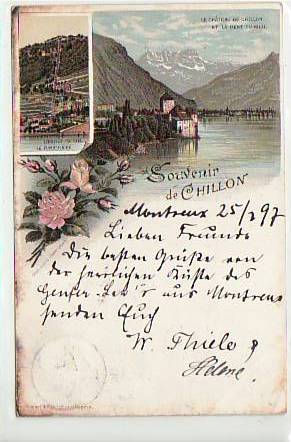 LE CHÂTEAU DE CHILLON
ET LA DENT DU MIDI.
Souvenir
de CHILLON
Montreux 25/ 97
Lieben Freunde
Die besten Grüße von
der herrlichen Küste des
Genfer-See's aus Montreux
senden Euch
W. Thiele &
Helene.